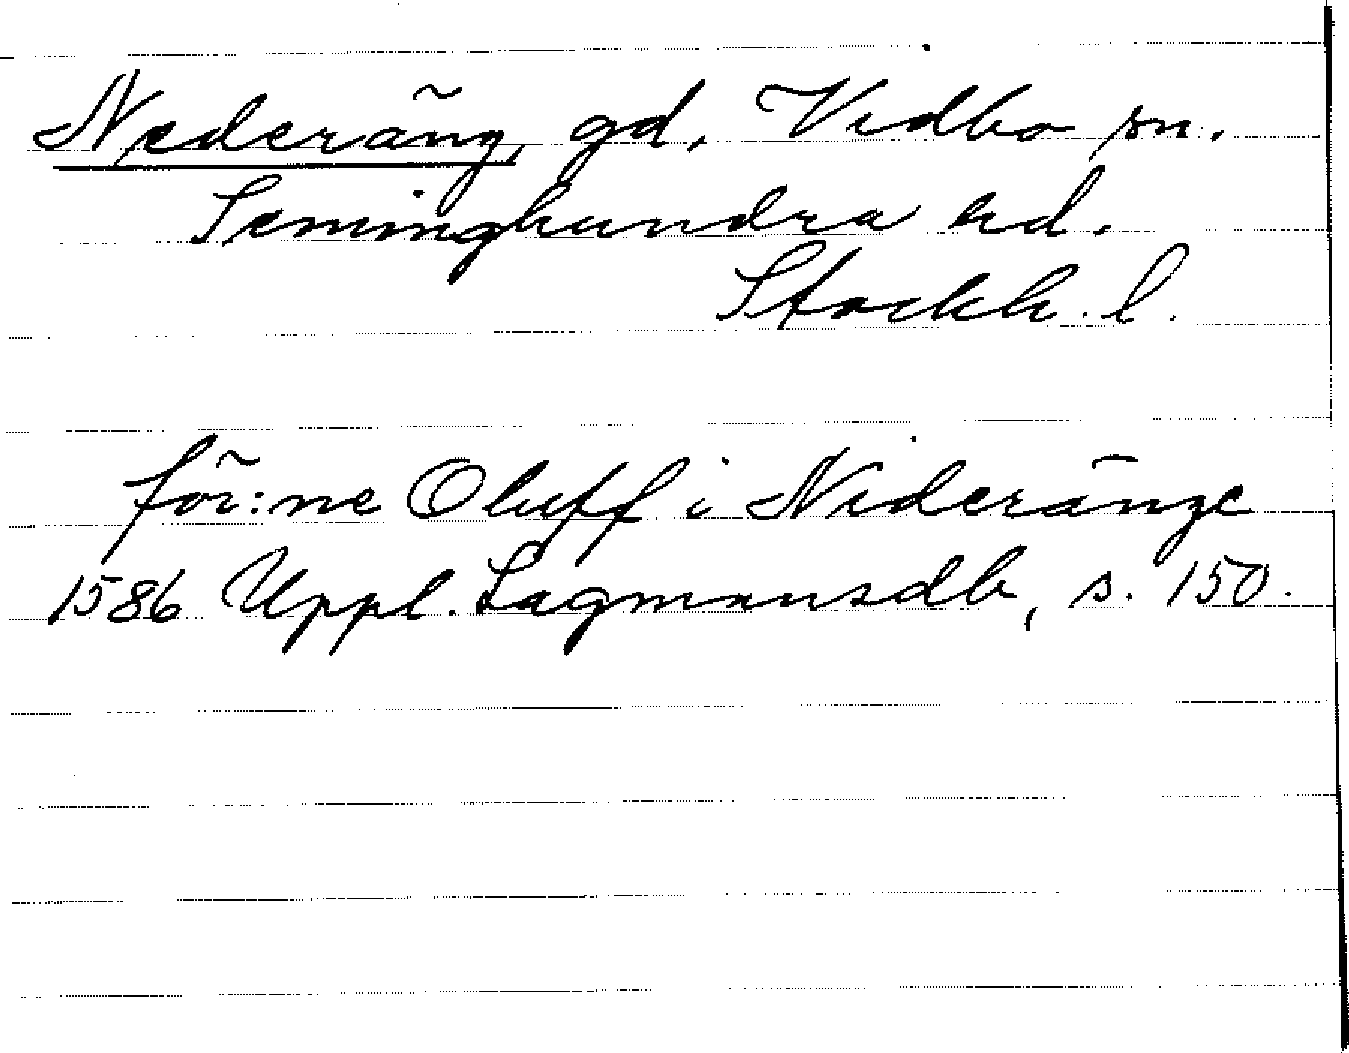 Nederäng, gd. Vidbo sn.
Seminghundra hd.
Stockh. l.
för:ne Oluff i Nideränge
1586 Uppl. Lagmansdb, s. 150.